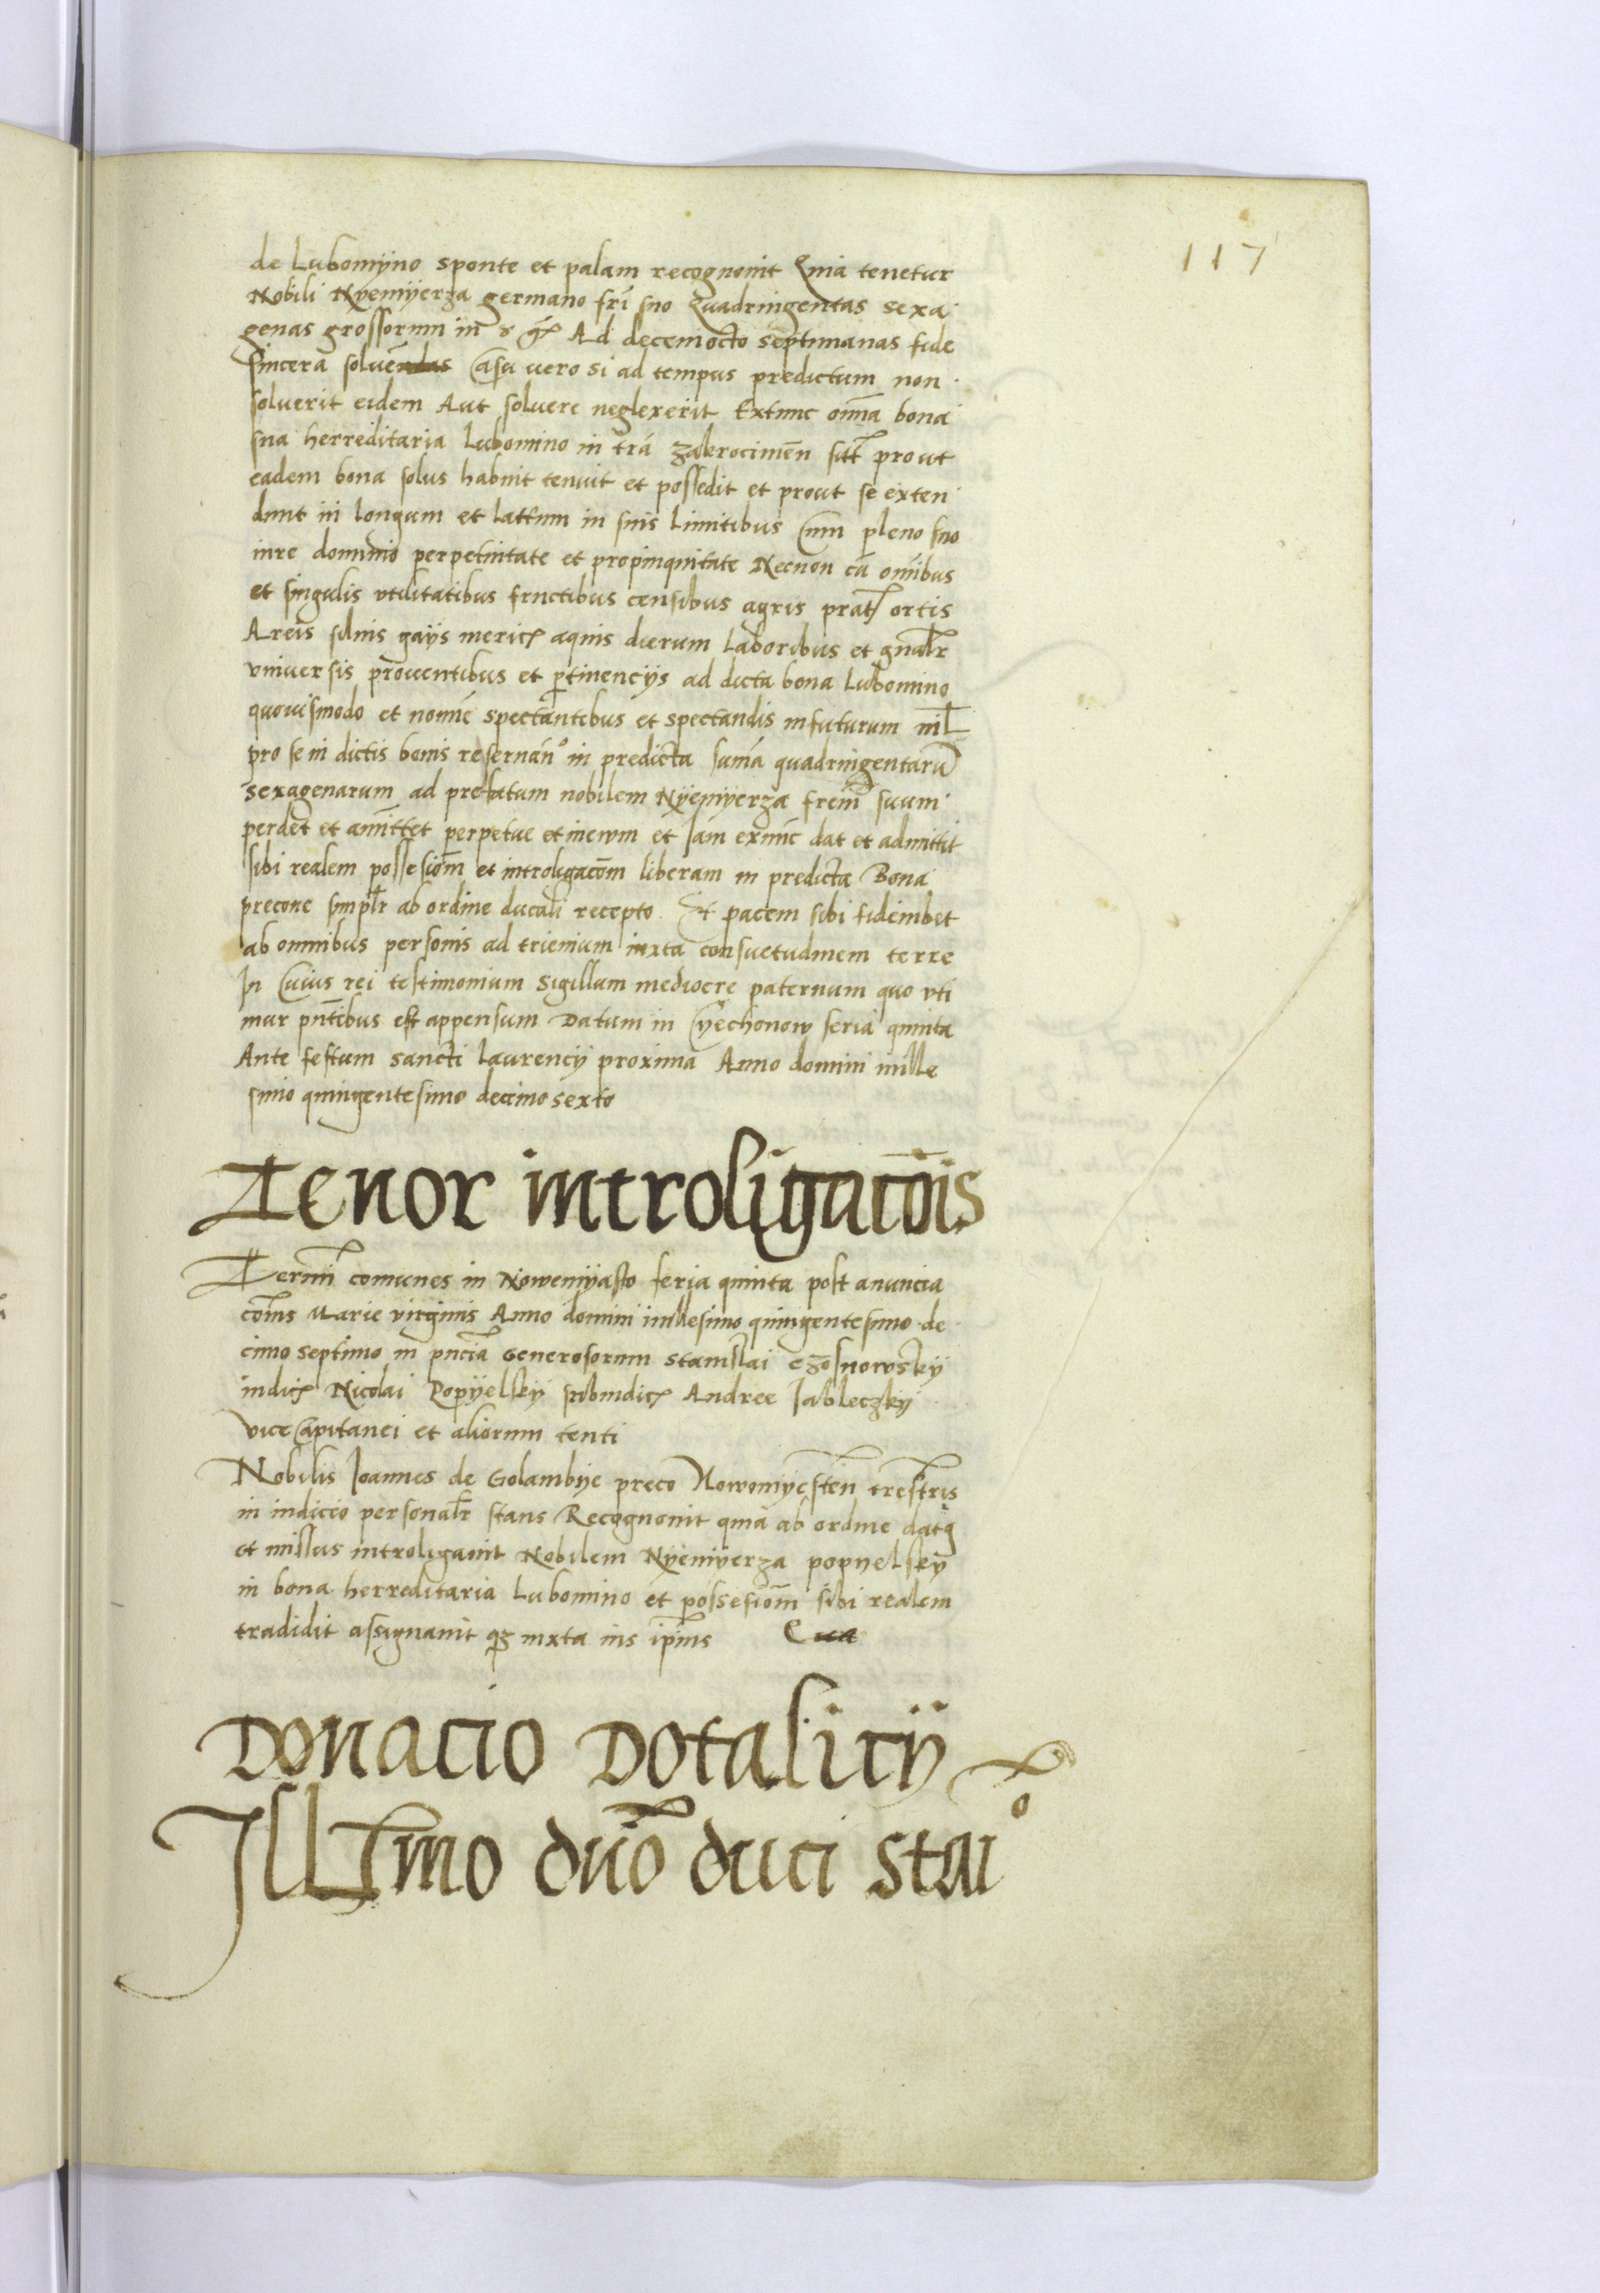 117
de Lubomyno sponte et palam recognouit Quia tenetur
Nobili Nyemyerza germano fri suo Quadringentas sexa
genas grossorum in Ad decemocto septimanas fide
sincera soluendas Casu uero si ad tempus predictum non
soluerit eidem Aut soluere neglexerit Extunc omia bona
sua herreditaria Lubomino in tra zakrocimen sitt prout
eadem bona solus habuit tenuit et possedit et prout se exten
dunt in longum et Lattum in suis Limitibus Cum pleno suo
iure dominio perpetuitate et propinquitate Necnon cu omibus
et singulis vtilitatibus fructibus censibus agris prat ortis
Areis siluis gays meric aquis dierum Laboribus et gnalr
vniuersis prouentibus et ptinencys ad dicta bona Lubomino
quouismodo et nomie spectantibus et spectandis infuturum nil
pro se in dictis bonis reseruan° in predicta suma quadringentaru
sexagenarum ad prefatum nobilem Nyemyerza frem suum
perdet et amittet perpetue et ineuum et Iam exnunc dat et admittit
sibi realem possesiom et introligacom liberam in predicta Bona
precone simplr ab ordine ducali recepto Et pacem sibi fideiubet
ab omnibus personis ad trienium iuxta consuetudinem terre
In Cuius rei testimonium sigillum mediocre paternum quo vti
mur pntibus est appensum Datum in Cyechonow feria quinta
Ante festum sancti Laurency proxima Anno domini mille
simo quingentesimo decimo sexto
Tenor introligacois
Termi comunes in Nowemyasto feria quinta post anuncia
coms Marie virginis Anno domini millesimo quingentesimo de
cimo septimo in pncia Generosorum Stanislai Gzosnowsky
iudic Nicolai Popyelsky subiudic Andree Jableczky
vice Capitanei et aliorum tenti
Nobilis Joannes de Golambye preco Nowomyesten trestris
in iudicio personalr stans Recognouit quia ab ordine datq
et missus introligauit Nobilem Nyemyerza popyelsky
in bona herreditaria Lubomino et possesiom sibi realem
tradidit assignauit qz iuxta ius ipius
Donacio Dotalicy
Illmo duo duci stai°